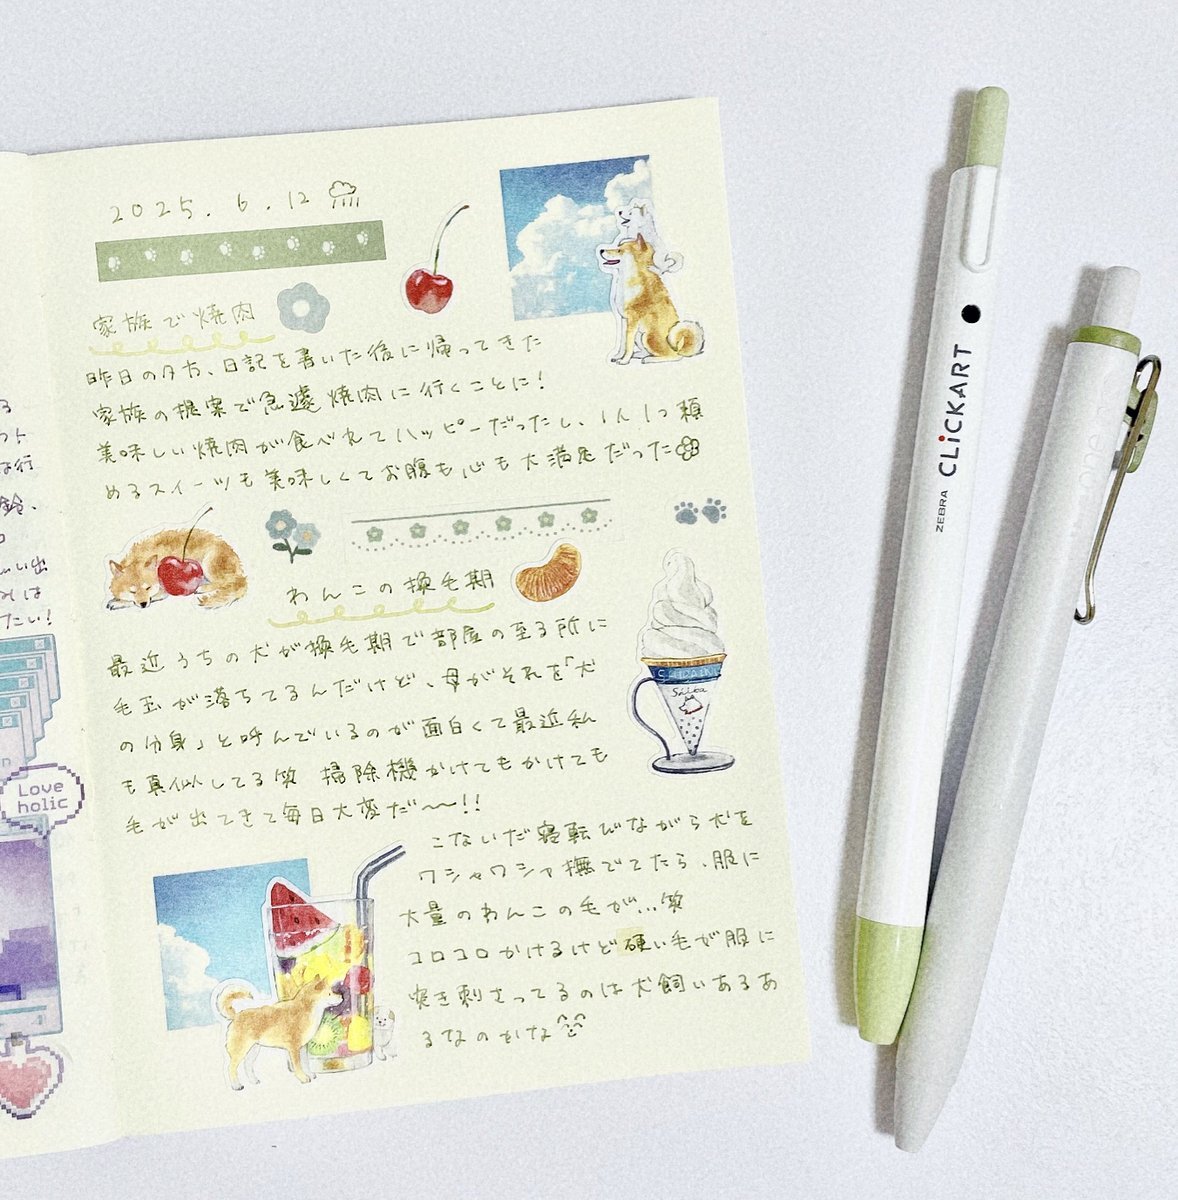 2025.6.12
家族で焼肉
昨日の夕方、日記を書いた後に帰ってきた
家族の提案で急遽焼肉に行くことに!
美味しい焼肉が食べれてハッピーだったし、1人1つ頼
めるスイーツも美味しくてお腹も心も大満足だった
わんこの換毛期
最近うちの犬が換毛期で部屋の至る所に
毛玉が落ちてるんだけど、母がそれを「犬
の分身」と呼んでいるのが面白くて最近私
も真似してる笑 掃除機かけてもかけても
毛が出てきて毎日大変だ〜〜!!
こないだ寝転びながら犬を
ワシャワシャ撫でてたら、服に
大量のわんこの毛が...笑
コロコロかけるけど硬い毛が服に
突き刺さってるのは犬飼いあるあ
るなのかな
Shiba
Love
holic
ト
は行
鈴、
い出
たい!
ZEBRA CLiCKART